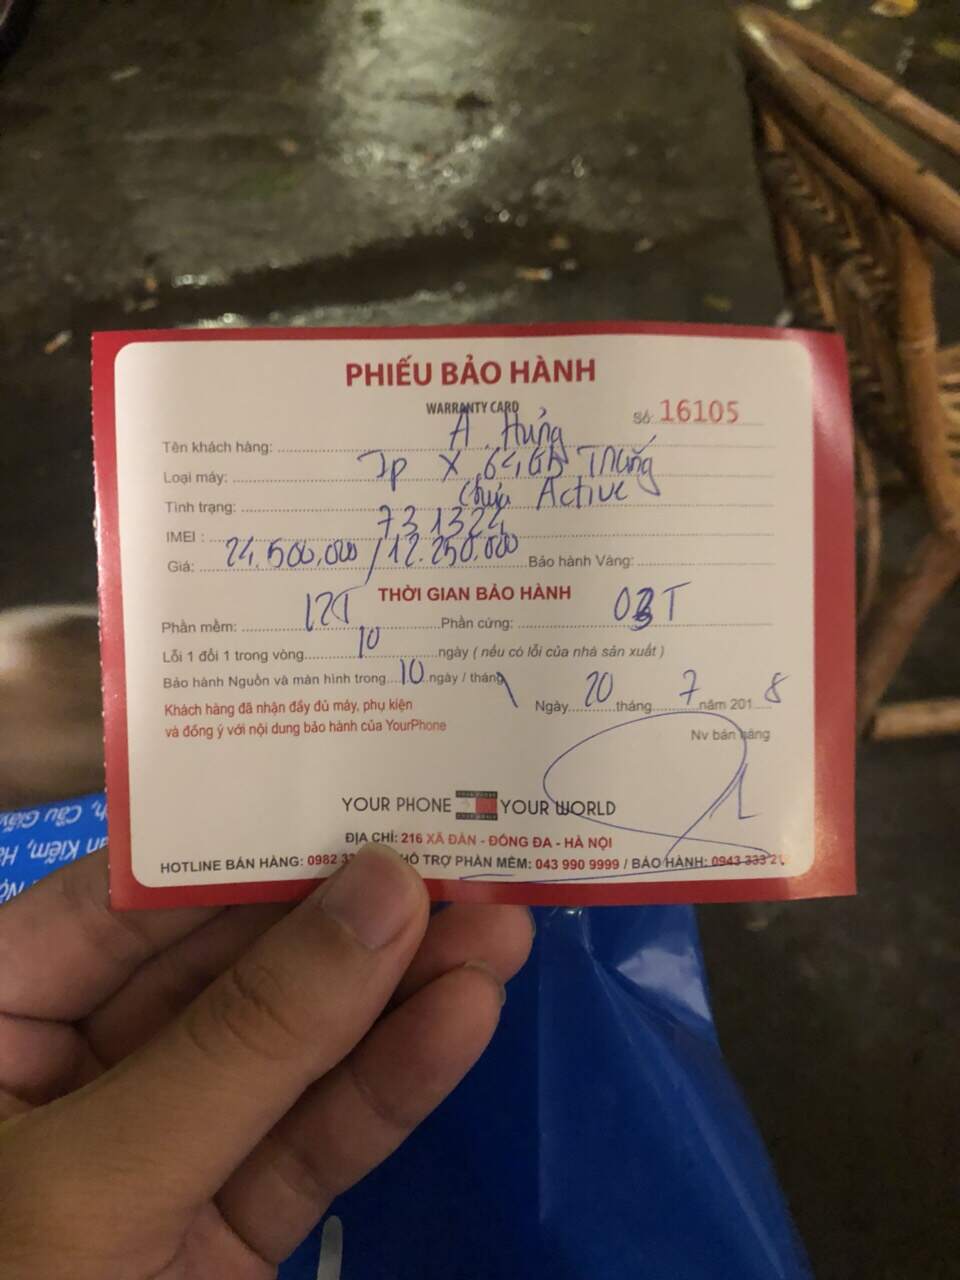 PHIẾU BẢO HÀNH
WARRANTY CARD
Số: 16105
Tên khách hàng: A. Hưng
Loại máy: Ip X 64Gb Trắng
Tình trạng: chưa Active
IMEI : 731324
Giá: 24.500.000 / 12.250.000 Bảo hành Vàng:
THỜI GIAN BẢO HÀNH
Phần mềm: 12T Phần cứng: 03T
Lỗi 1 đổi 1 trong vòng 10 ngày ( nếu có lỗi của nhà sản xuất )
Bảo hành Nguồn và màn hình trong 10 ngày / tháng
Ngày 20 tháng 7 năm 2018
Khách hàng đã nhận đầy đủ máy, phụ kiện
và đồng ý với nội dung bảo hành của YourPhone
Nv bán hàng
YOUR PHONE YOUR WORLD
ĐỊA CHỈ: 216 XÃ ĐÀN - ĐỐNG ĐA - HÀ NỘI
HOTLINE BÁN HÀNG: 0982 HỖ TRỢ PHẦN MỀM: 043 990 9999 / BẢO HÀNH: 0943 333
Cầu Giấy
Kiếm,